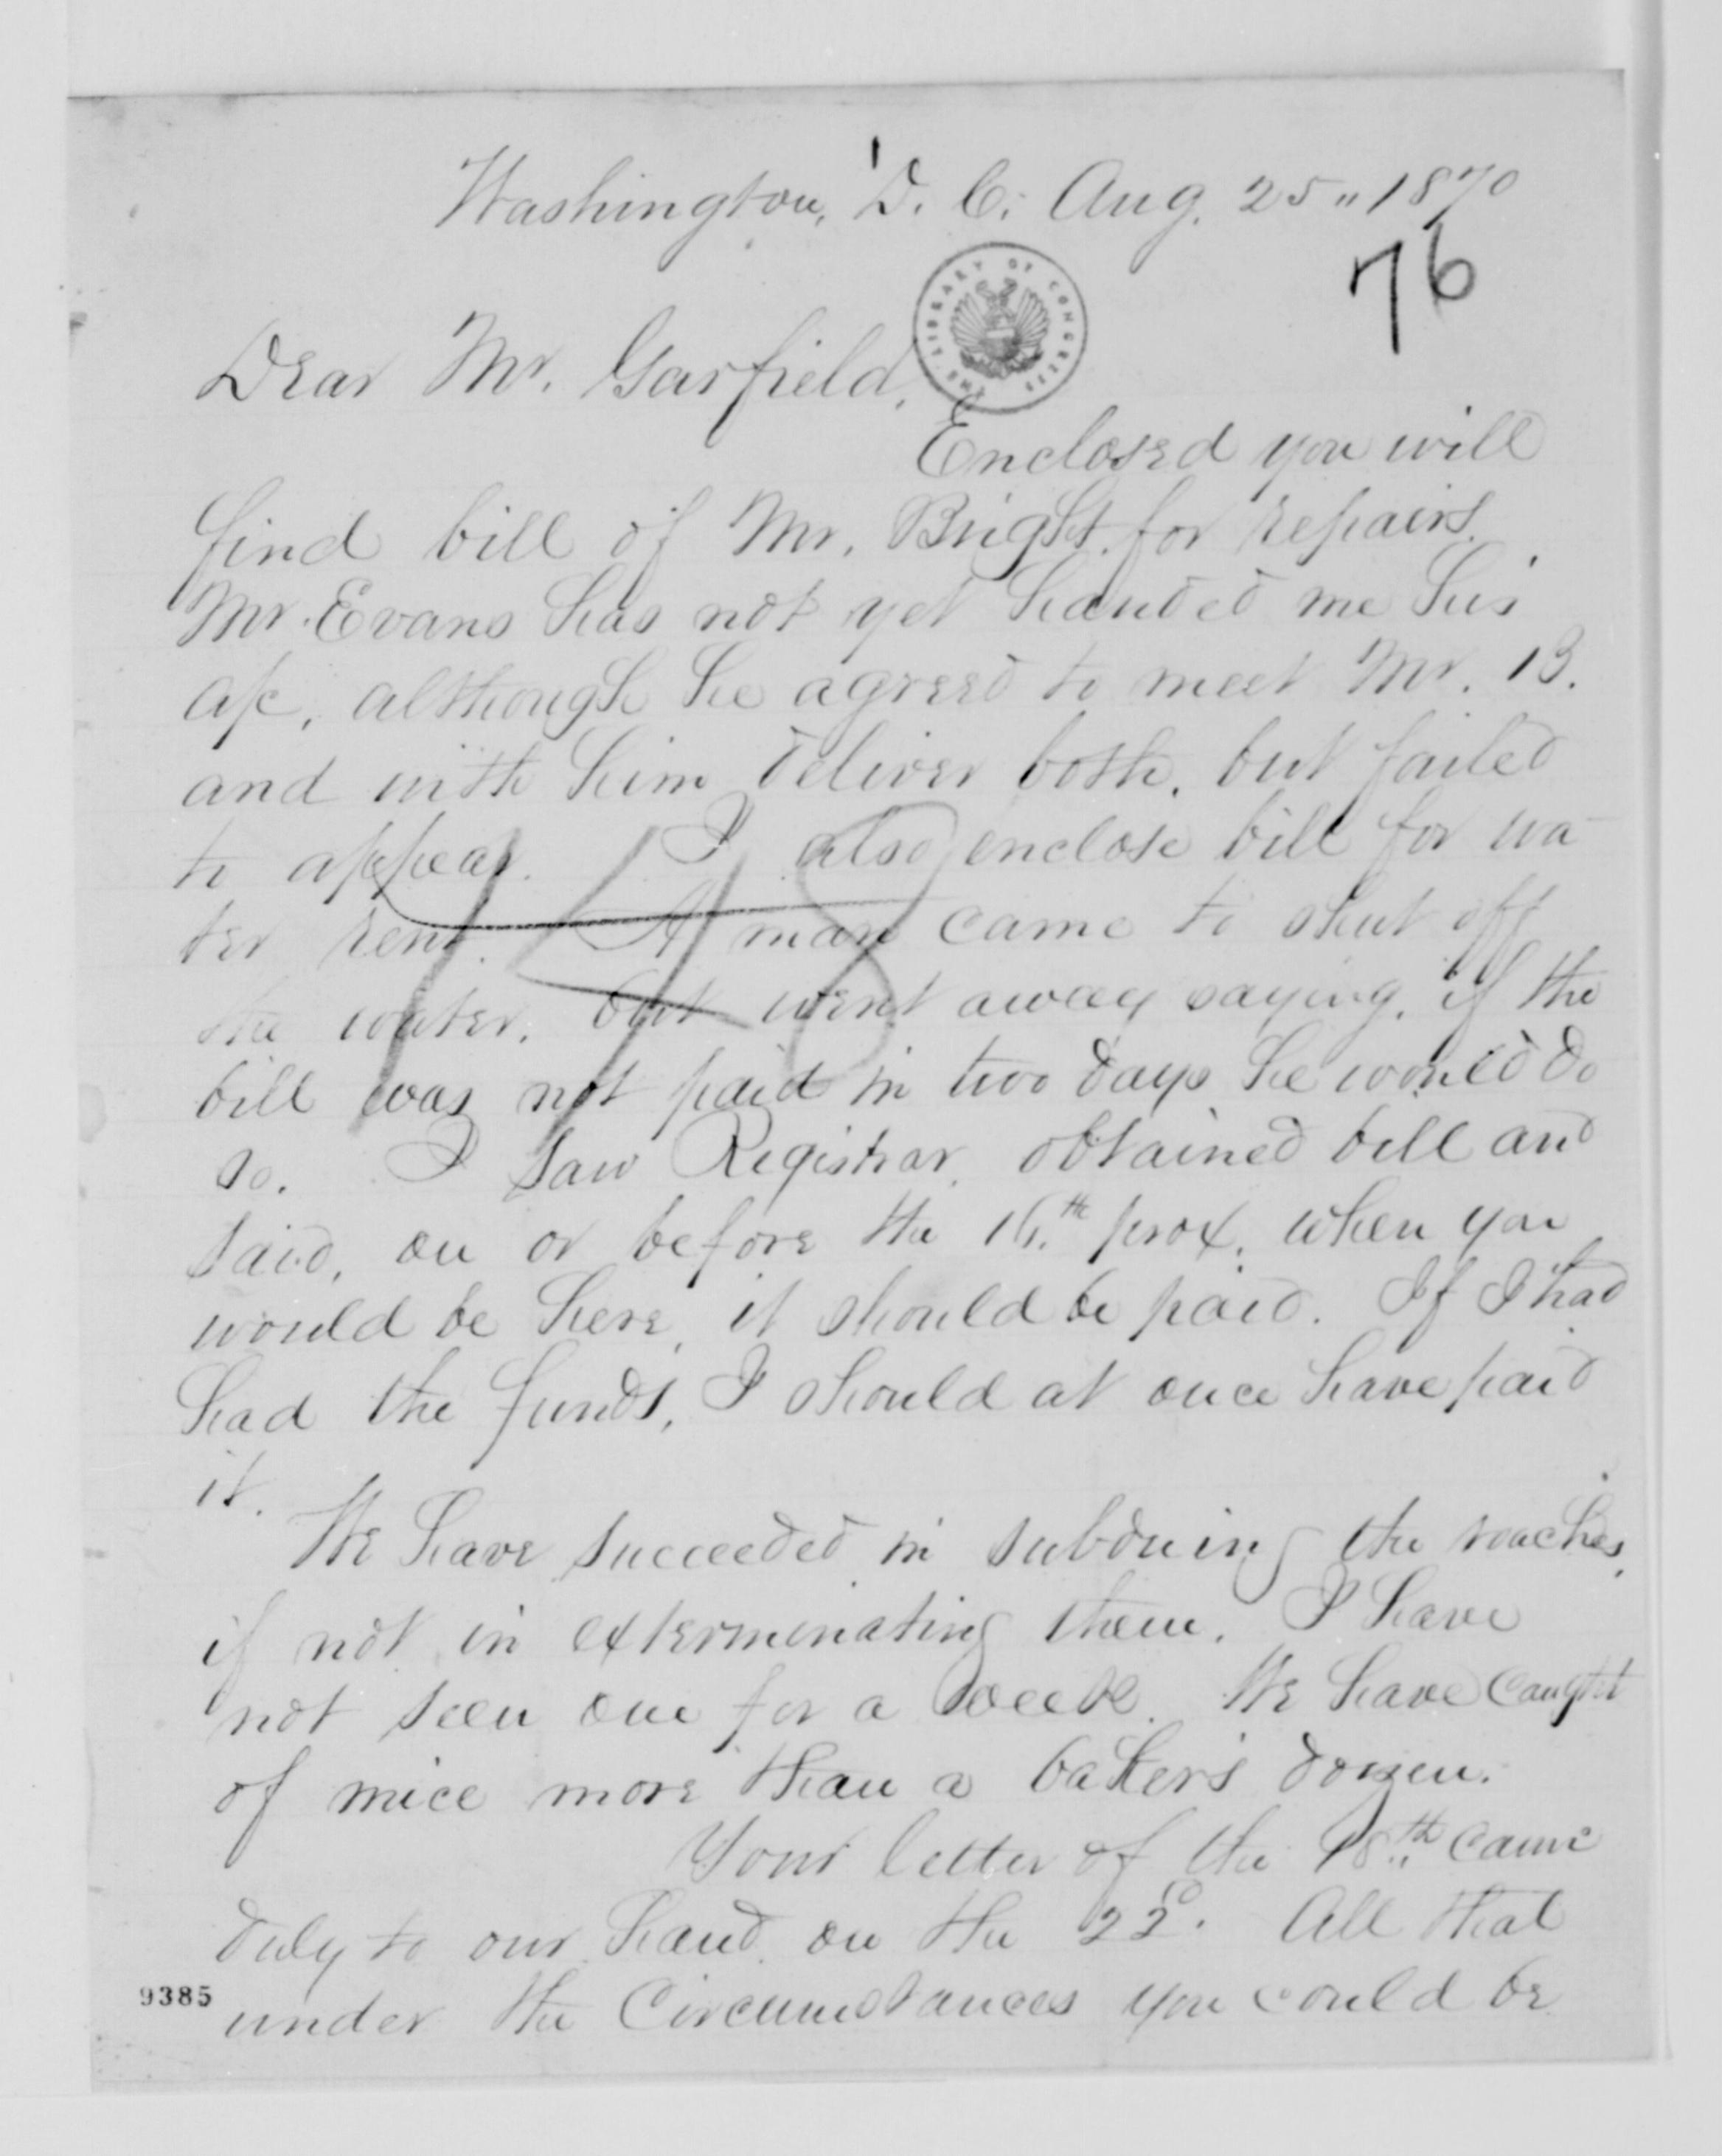 Washington, D. C. Aug. 25" 1870
76
THE LIBRARY OF CONGRESS
Dear Mr. Garfield,
Enclosed you will
find bill of Mr. Bright for repairs.
Mr. Evans has not yet handed me his
a/c, although he agreed to meet Mr. B.
and with him deliver both, but failed
to appear. I also enclose bill for wa-
ter rent. A man came to shut off
the water, but went away saying, if the
bill was not paid in two days he would do
so. I saw Registrar, obtained bill and
said, on or before the 16th prox, when you
would be here, it should be paid. If I had
had the funds, I should at once have paid
it.
We have succeeded in subduing the roaches,
if not in exterminating them. I have
not seen one for a week. We have caught
of mice more than a baker's dozen.
Your letter of the 18th came
duly to our hand on the 22d. All that
9385
under the circumstances you could be